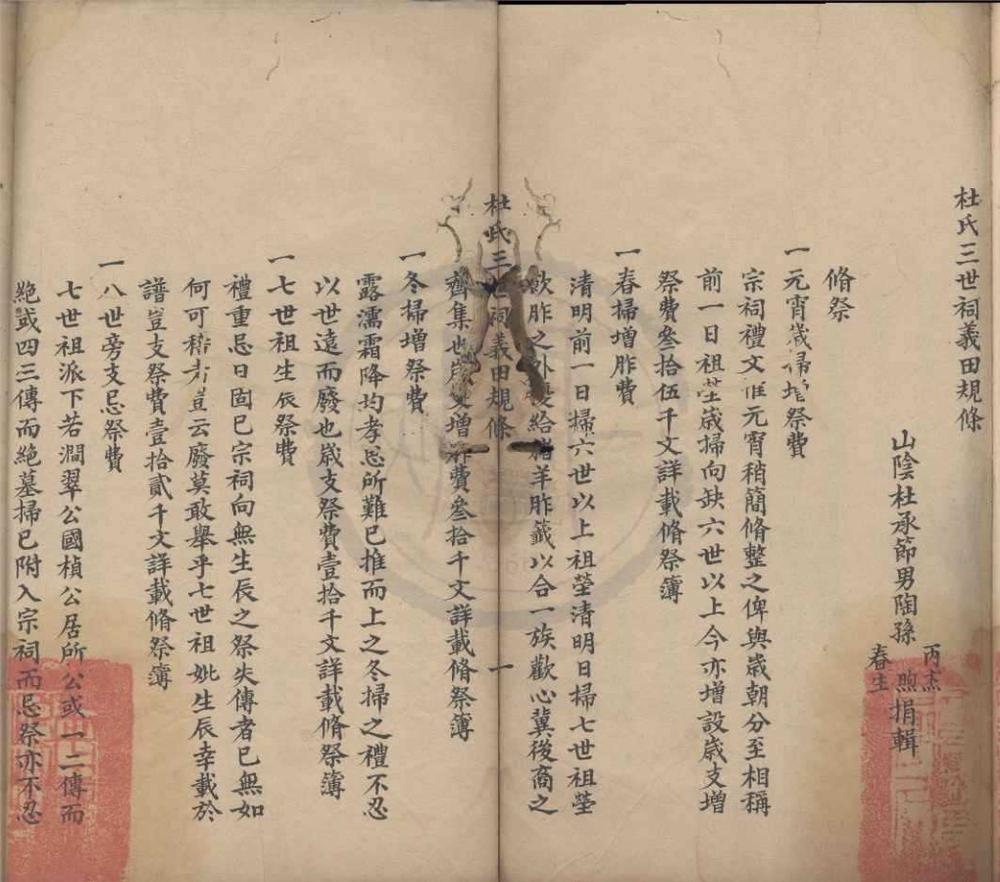 杜氏三世祠義田規條
山陰杜承節男陶孫 丙杰 煦 春生 捐輯
脩祭
一元宵歲掃增祭費
宗祠禮文惟元宵稍簡脩整之俾與歲朝分至相稱
前一日祖塋歲掃向缺六世以上今亦增設歲支增
祭費叄拾伍千文詳載脩祭簿
一春掃增胙費
清明前一日掃六世以上祖塋清明日掃七世祖塋
飲胙之外更給豬羊胙籤以合一族歡心冀後裔之
杜氏三世祠義田規條 一
齊集也歲支增胙費叄拾千文詳載脩祭簿
一冬掃增祭費
露濡霜降均孝思所難已推而上之冬掃之禮不忍
以世遠而廢也歲支祭費壹拾千文詳載脩祭簿
一七世祖生辰祭費
禮重忌日固已宗祠向無生辰之祭失傳者已無如
何可稽者豈云廢莫敢舉乎七世祖妣生辰幸載於
譜豈支祭費壹拾貳千文詳載脩祭簿
一八世旁支忌祭費
七世祖派下若澗翠公國楨公居所公或一二傳而
絕或四三傳而絕墓掃已附入宗祠而忌祭亦不忍